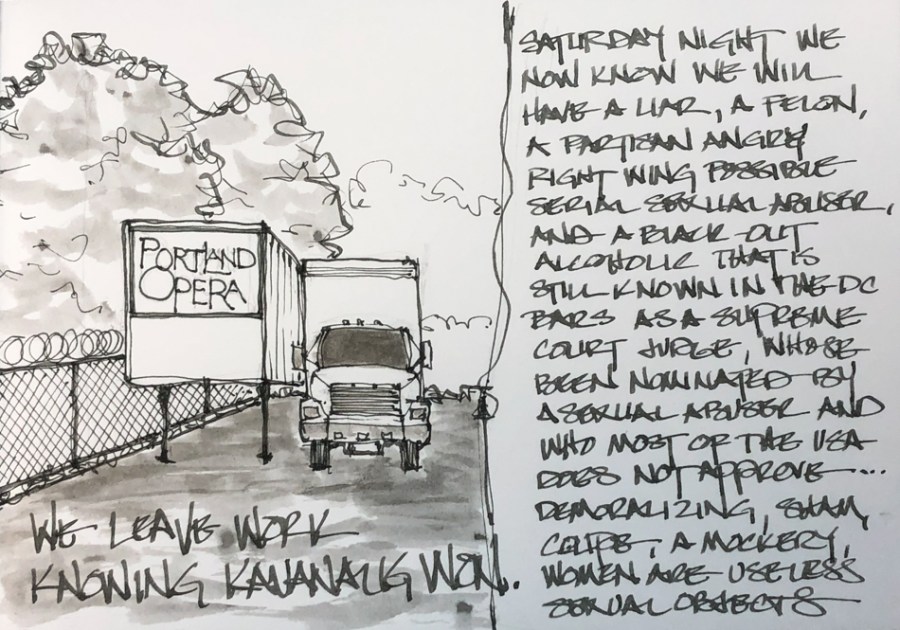 PORTLAND
OPERA
WE LEAVE WORK
KNOWING KAVANAUG WON.
SATURDAY NIGHT WE
NOW KNOW WE WILL
HAVE A LIAR, A FELON,
A PARTISAN ANGRY
RIGHT WING POSSIBLE
SERIAL SEXUAL ABUSER,
AND A BLACK OUT
ALCOHOLIC THAT IS
STILL KNOWN IN THE DC
BARS AS A SUPREME
COURT JUDGE, WHOSE
BEEN NOMINATED BY
A SEXUAL ABUSER AND
WHO MOST OF THE USA
DOES NOT APPROVE ...
DEMORALIZING, SHAM,
, A MOCKERY,
WOMEN ARE USELESS
SEXUAL OBJECTS